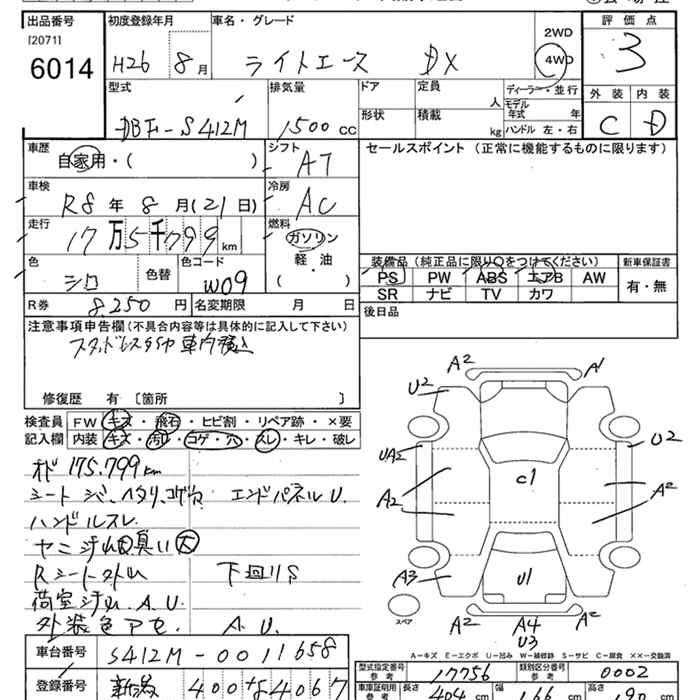 出品番号 初度登録年月 車名・グレード 評価点
[2071] 2WD
6014 H26 8月 ライトエース DX 4WD 3
型式 排気量 ドア 定員 人 ディーラー・並行 外装 内装
DBF-S412M 1500cc 形状 積載 kg モデル年式 年 ハンドル 左・右 C D
車歴 シフト セールスポイント(正常に機能するものに限ります)
自家用・( ) AT
車検 冷房
R8年8月(21日) AC
走行 燃料
17万5千799km ガソリン
色 色替 色コード 軽・油 装備品(純正品に限り○をつけてください) 新車保証書
シロ W09 ( ) PS PW ABS エアB AW 有・無
SR ナビ TV カワ
R券 8,250円 名変期限 月 日 後日品
注意事項申告欄(不具合内容等は具体的に記入して下さい)
スタッドレスタイヤ車内積込
修復歴 有〔箇所 〕
検査員 FW キズ・飛石・ヒビ割・リペア跡・×要
記入欄 内装 キズ・汚れ・コゲ・穴・スレ・キレ・破レ
175.799km
シート エンドパネルU.
ハンドルスレ
ヤニ汚 臭い大
下回りS
荷室 A.U.
外装色アセ. A.U.
車台番号 S412M-0011658
登録番号 400 4067
A2 A1
U2
UA2 U2
C1
A2 A2
A3 U1
スペア A2 A4 A2
U3
A-キズ E-エクボ U-凹み W-補修跡 S-サビ C-腐食 ××-交換済
型式指定番号 参考 17756 類別区分番号 参考 0002
車庫証明用 参考 長さ 404cm 幅 166cm 高さ 190cm